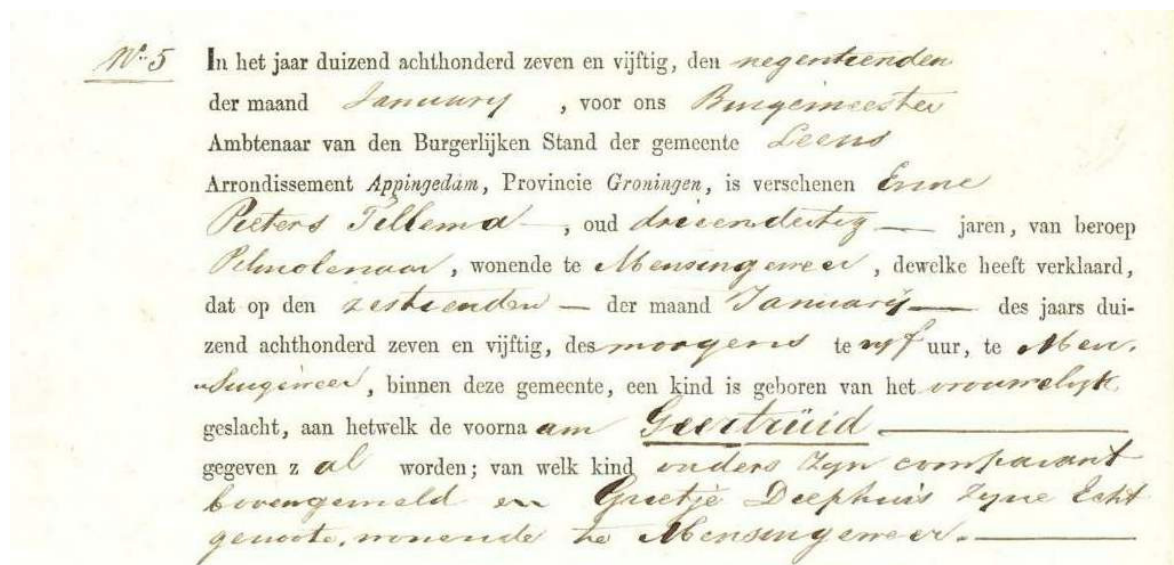 No. 5 In het jaar duizend achthonderd zeven en vijftig, den negentienden
der maand January , voor ons Burgemeester
Ambtenaar van den Burgerlijken Stand der gemeente Leens
Arrondissement Appingedam, Provincie Groningen, is verschenen Enne
Pieters Tillema —, oud drieendertig — jaren, van beroep
Pelmolenaar, wonende te Mensingeweer, dewelke heeft verklaard,
dat op den zestienden — der maand January — des jaars dui-
zend achthonderd zeven en vijftig, des morgens te vyf uur, te Men-
singeweer, binnen deze gemeente, een kind is geboren van het vrouwelyk
geslacht, aan hetwelk de voorna am Geertruid —
gegeven z al worden; van welk kind ouders zyn comparant
bovengemeld en Grietje Diephuis zyne Echt
genoote, wonende te Mensingeweer. —